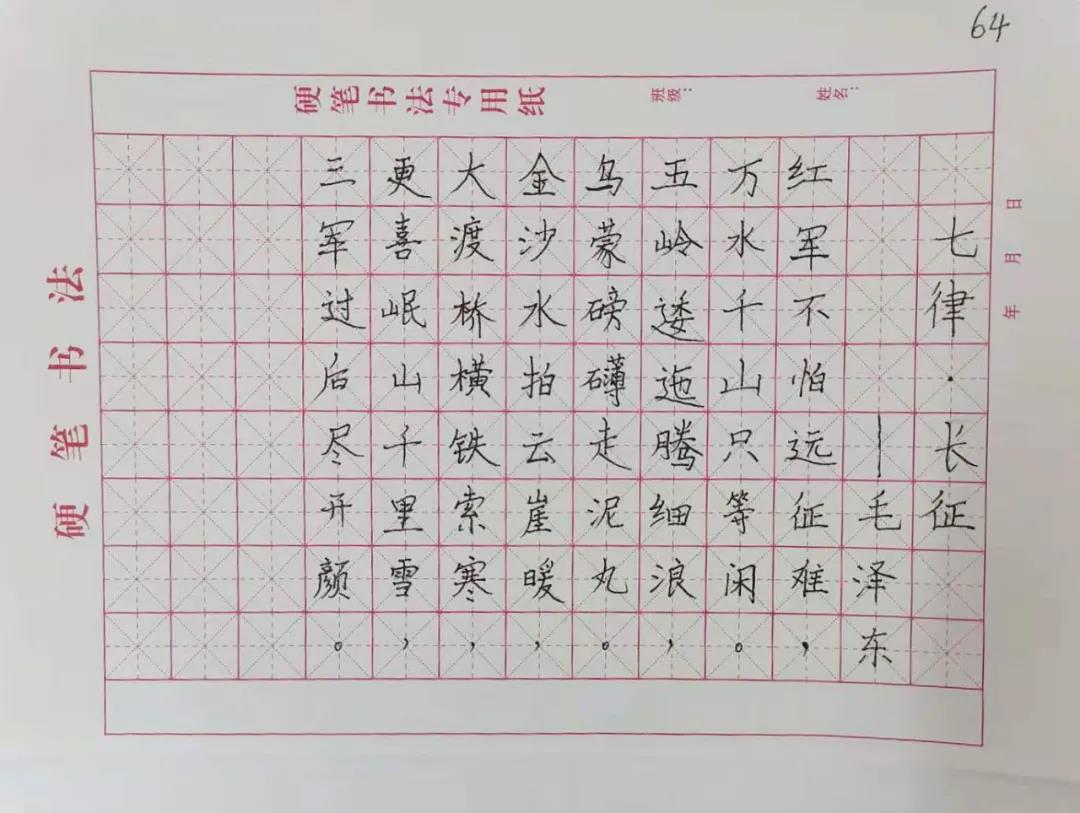 64
硬笔书法专用纸
班级：
姓名：
年 月 日
硬笔书法
七律·长征
—毛泽东
红军不怕远征难，
万水千山只等闲。
五岭逶迤腾细浪，
乌蒙磅礴走泥丸。
金沙水拍云崖暖，
大渡桥横铁索寒，
更喜岷山千里雪，
三军过后尽开颜。